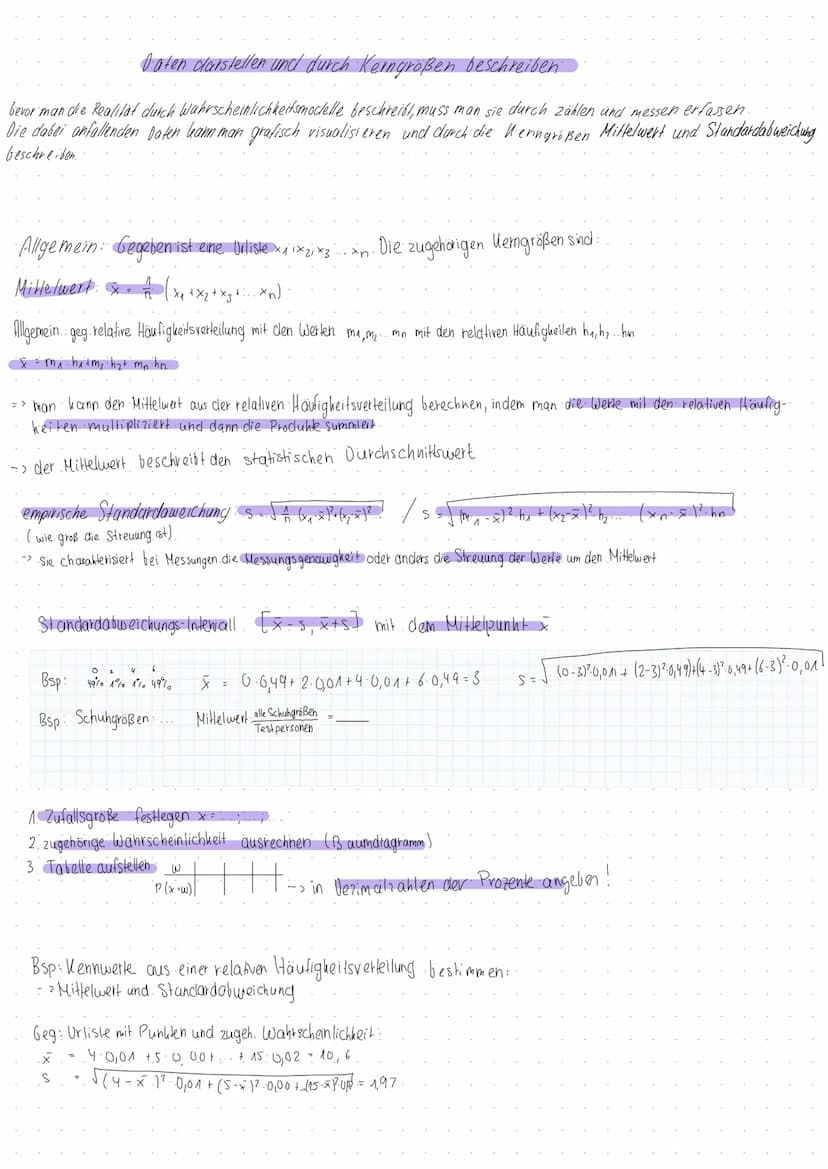 Daten darstellen und durch Kerngrößen beschreiben
bevor man die Realität durch Wahrscheinlichkeitsmodelle beschreibt, muss man sie durch zählen und messen erfassen.
Die dabei anfallenden Daten kann man grafisch visualisieren und durch die Kerngrößen Mittelwert und Standardabweichung
beschreiben
Allgemein: Gegeben ist eine Urliste x1, x2, x3 ... xn. Die zugehörigen Kerngrößen sind:
Mittelwert: x̄ = 1/n (x1 + x2 + x3 + ... xn)
Allgemein: geg. relative Häufigkeitsverteilung mit den Werten m1, m2 ... mn mit den relativen Häufigkeiten h1, h2 ... hn
x̄ = m1 · h1 + m2 h2 + mn hn
=> man kann den Mittelwert aus der relativen Häufigkeitsverteilung berechnen, indem man die Werte mit den relativen Häufig-
keiten multipliziert und dann die Produkte summiert
-> der Mittelwert beschreibt den statistischen Durchschnittswert
empirische Standardaweichung: s = √(1/n (x1-x̄)²+(x2-x̄)²) / s = √((m1-x̄)² · h1 + (x2-x̄)² h2 ... (xn-x̄)² · hn)
(wie groß die Streuung ist)
-> Sie charakterisiert bei Messungen die Messungsgenauigkeit oder anders die Streuung der Werte um den Mittelwert
Standardabweichungs-Intervall [x̄-s, x̄+s] mit dem Mittelpunkt x̄
0 2 4 6
Bsp: 49% 1% 1% 49% x̄ = 0·0,49 + 2·0,01 + 4·0,01 + 6·0,49 = 3 s = √((0-3)²·0,01 + (2-3)²·0,49)+(4-3)²·0,49+(6-3)²·0,01
Bsp: Schuhgrößen ... Mittelwert alle Schuhgrößen / Testpersonen = ____
1. Zufallsgröße festlegen x = ; ; ...
2. zugehörige Wahrscheinlichkeit ausrechnen (Baumdiagramm)
3. Tabelle aufstellen w
P(x=w) -> in Dezimalzahlen der Prozente angeben!
Bsp: Kennwerte aus einer relativen Häufigkeitsverteilung bestimmen:
-> Mittelwert und Standardabweichung
Geg: Urliste mit Punkten und zugeh. Wahrscheinlichkeit:
x̄ = 4·0,01 + 5·0,00 + ... + 15·0,02 = 10,6
s = √((4-x̄)²·0,01 + (5-x̄)²·0,00 + ...(15-x̄)²·0,02) = 1,97